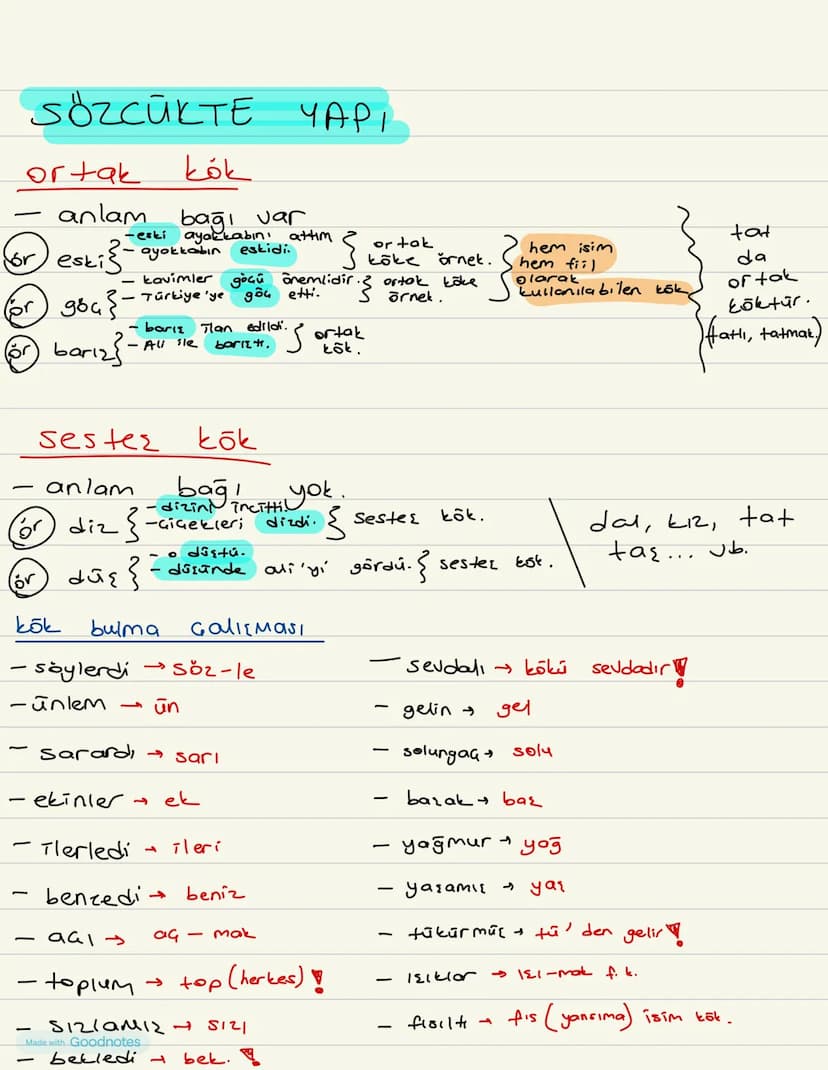 SÖZCÜKTE YAPI
ortak kök
— anlam bağı var
ör eski { - eski ayakkabını attım
- ayakkabın eskidi. } ortak köke örnek.
ör göç { - kavimler göçü önemlidir.
- Türkiye'ye göç etti. } ortak köke örnek.
hem isim hem fiil olarak kullanılabilen kök
ör barış { - barış ilan edildi.
- Ali ile barıştı. } ortak kök.
tat
da
ortak
köktür.
(tatlı, tatmak)
sesteş kök
— anlam bağı yok.
ör diz { - dizini incitti
- Çiçekleri dizdi. } sesteş kök.
ör düş { - o düştü.
- düşünde ali'yi gördü. } sesteş kök.
dal, kız, tat
taş... vb.
kök bulma çalışması
- söylerdi → söz-le
- ünlem → ün
- sarardı → sarı
- ekinler → ek
- ilerledi → ileri
- benzedi → beniz
- açı → aç - mak
- toplum → top (herkes) !
- sızlamış → sızı
- bekledi → bek. !
- sevdalı → kökü sevdadır !
- gelin → gel
- solungaç → solu
- başak → baş
- yağmur → yağ
- yaşamış → yaş
- tükürmüş → tü' den gelir !
- ışıklar → ışı-mak f. k.
- fısıltı → fıs (yansıma) isim kök.
Made with Goodnotes